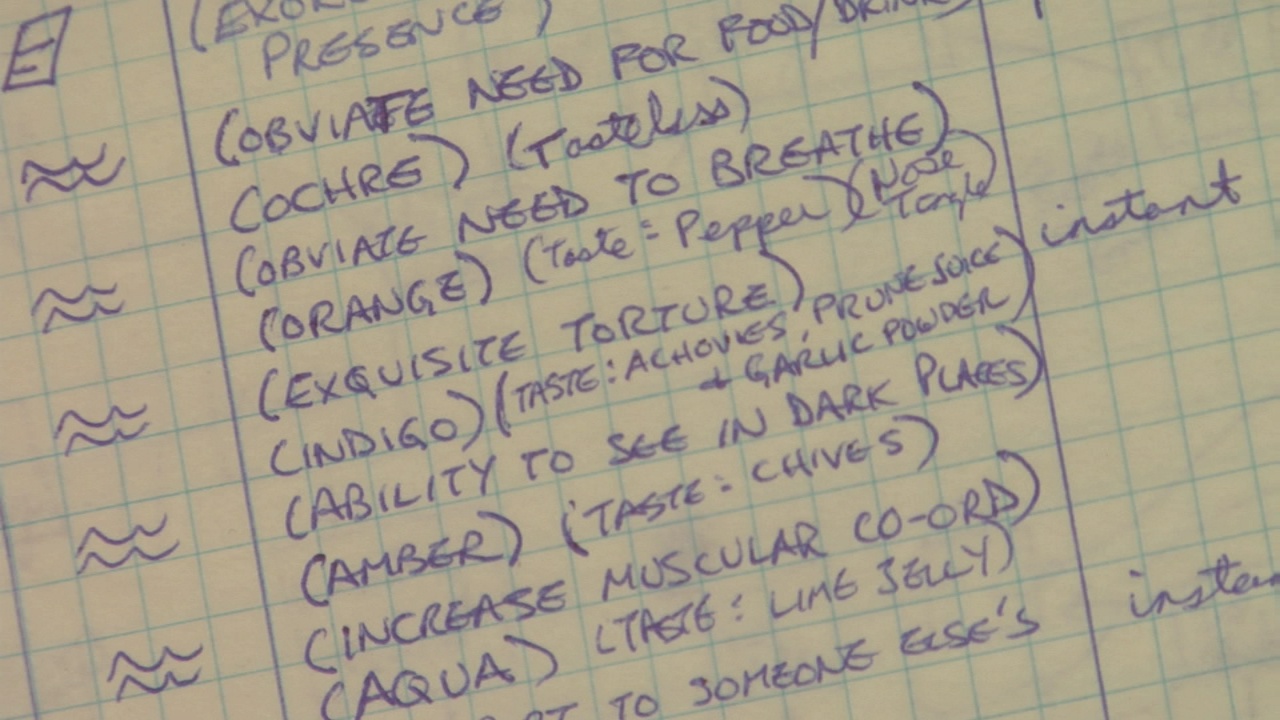 E
PRESENCE)
(OBVIATE NEED FOR FOOD/DRINK)
(OCHRE) (Tasteless)
(OBVIATE NEED TO BREATHE)
(ORANGE) (Taste: Pepper) (Nose
instant
(EXQUISITE TORTURE)
(INDIGO) (TASTE: ACHOVIES, PRUNE JUICE
+ GARLIC POWDER)
(ABILITY TO SEE IN DARK PLACES)
(AMBER) (TASTE: CHIVES)
(INCREASE MUSCULAR CO-ORD)
(AQUA) (TASTE: LIME JELLY)
TO SOMEONE ELSE'S